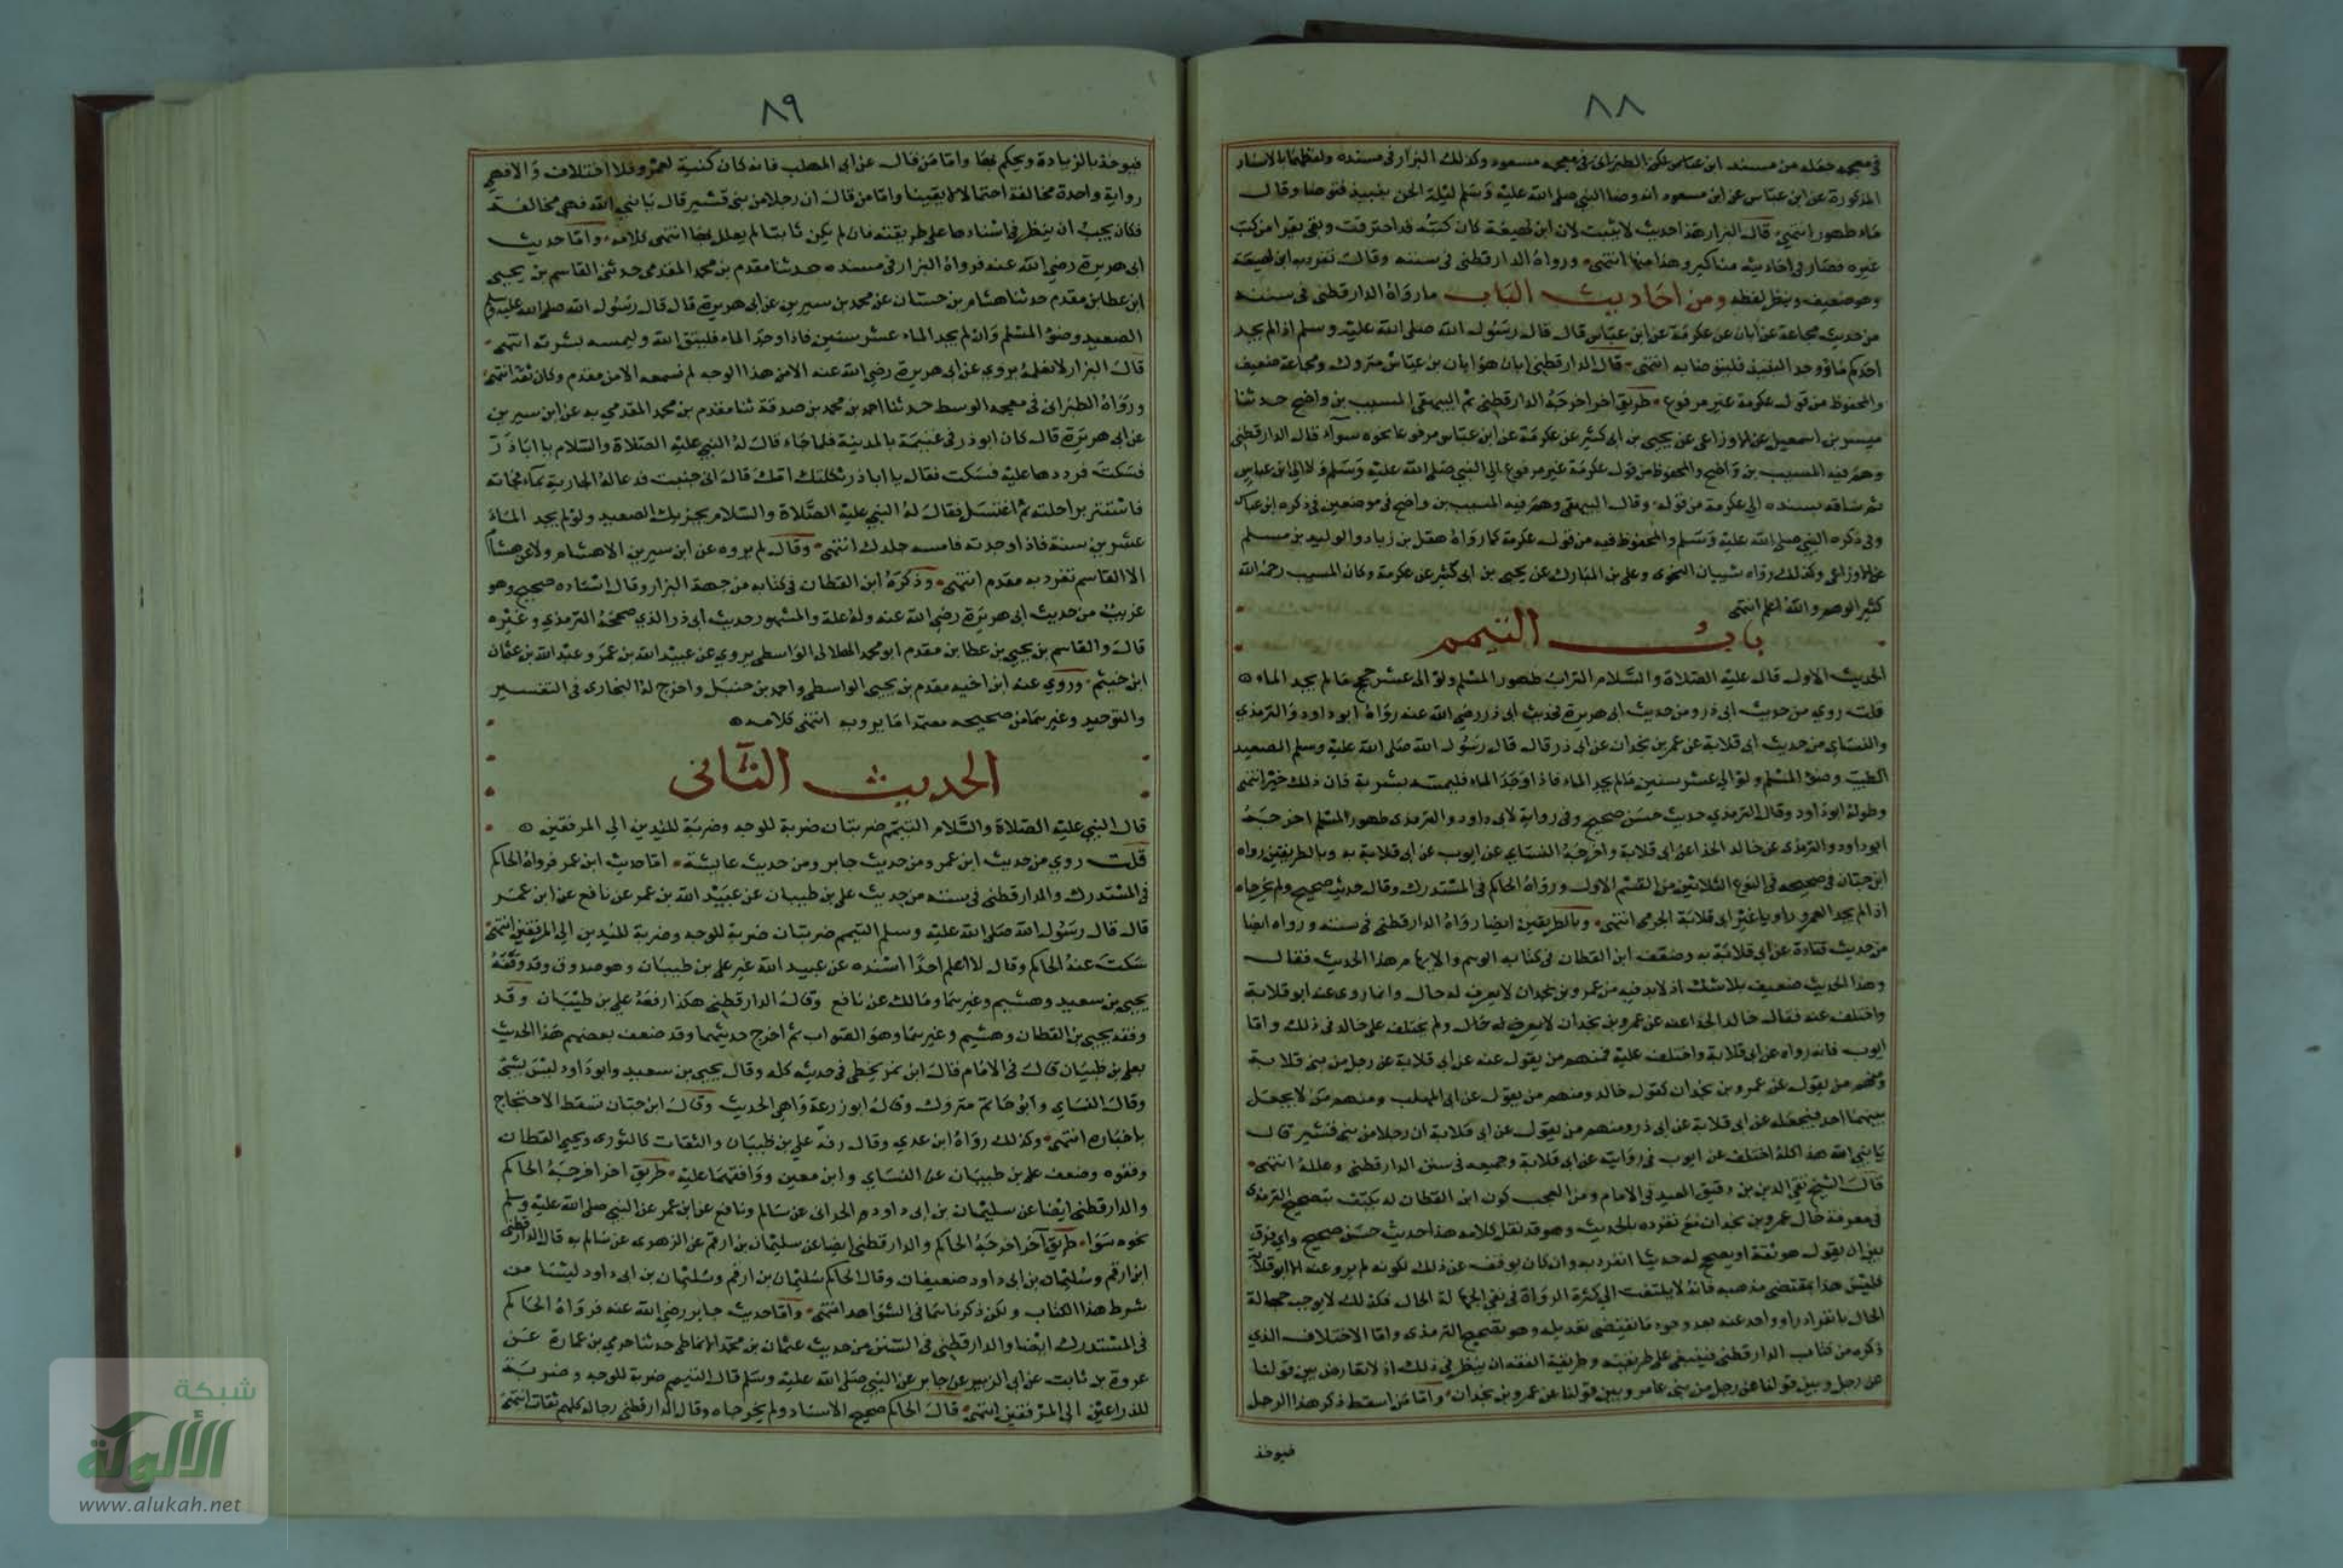 ٨٨
في معجمه جعله من مسند ابن عباس لكن الطبراني في معجمه مسعود وكذلك البزار في مسنده ولفظهما بالاسناد
المذكورة عن ابن عباس عن ابن مسعود انه وضا النبي صلى الله عليه وسلم ليلة الجن بنبيذ فتوضا وقال
ماء طهور انتهى قال البزار هذا حديث لا يثبت لان ابن لهيعة كان كتبه قد احترقت وبقي يقرا من كتب
غيره فصار في احاديثه مناكير وهذا منها انتهى ورواه الدارقطني في سننه وقال تفرد به ابن لهيعة
وهو ضعيف وينظر لفظه ومن احاديث الباب ما رواه الدارقطني في سننه
من حديث مجاعة عن ابان عن عكرمة عن ابن عباس قال قال رسول الله صلى الله عليه وسلم اذا لم يجد
احدكم ماء ووجد النبيذ فليتوضا به انتهى قال الدارقطني ابان هو ابان بن عياش متروك ومجاعة ضعيف
والمحفوظ من قول عكرمة غير مرفوع طريق اخر اخرجه الدارقطني ثم البيهقي المسيب بن واضح حدثنا
ميسر بن اسمعيل عن الاوزاعي عن يحيى بن ابي كثير عن عكرمة عن ابن عباس مرفوعا نحوه سواء قال الدارقطني
وهم فيه المسيب بن واضح والمحفوظ من قول عكرمة غير مرفوع الى النبي صلى الله عليه وسلم ولا الى ابن عباس
ثم ساقه بسنده الى عكرمة من قوله وقال البيهقي وهم فيه المسيب بن واضح في موضعين في ذكره ابن عباس
وفي ذكره النبي صلى الله عليه وسلم والمحفوظ فيه من قول عكرمة كما رواه هقل بن زياد والوليد بن مسلم
عن الاوزاعي وكذلك رواه شيبان النحوي وعلي بن المبارك عن يحيى بن ابي كثير عن عكرمة وكان المسيب رحمه الله
كثير الوهم والله اعلم انتهى
باب التيمم
الحديث الاول قال عليه الصلاة والسلام التراب طهور المسلم ولو الى عشر حجج ما لم يجد الماء
قلت روي من حديث ابي ذر ومن حديث ابي هريرة فحديث ابي ذر رضي الله عنه رواه ابو داود والترمذي
والنساي من حديث ابي قلابة عن عمر بن بجدان عن ابي ذر قال قال رسول الله صلى الله عليه وسلم الصعيد
الطيب وضو المسلم ولو الى عشر سنين ما لم يجد الماء فاذا وجد الماء فليمسه بشرته فان ذلك خير انتهى
وطوله ابو داود وقال الترمذي حديث حسن صحيح وفي رواية لابي داود والترمذي طهور المسلم اخرجه
ابو داود والترمذي عن خالد الحذا عن ابي قلابة واخرجه النساي عن ايوب عن ابي قلابة به وبالطريقين رواه
ابن حبان في صحيحه في النوع الثلاثين من القسم الاول ورواه الحاكم في المستدرك وقال حديث صحيح ولم يخرجاه
اذا لم يجد العمرو راويا غير ابي قلابة الجرمي انتهى وبالطريقين ايضا رواه الدارقطني في سننه ورواه ايضا
من حديث قتادة عن ابي قلابة به وضعفه ابن القطان في كتابه الوهم والايهام هذا الحديث فقال
وهذا الحديث ضعيف بلا شك اذ لابد فيه من عمرو بن بجدان لا يعرف له حال وانما روى عنه ابو قلابة
واختلف عنه فقال خالد الحذا عنه عن عمرو بن بجدان لا يعرف له حال ولم يختلف على خالد في ذلك واما
ايوب فانه رواه عن ابي قلابة واختلف عليه فمنهم من يقول عنه عن ابي قلابة عن رجل من بني قلابة
ومنهم من يقول عن عمرو بن بجدان كقول خالد ومنهم من يقول عن ابي المهلب ومنهم من لا يجعل
بينهما احد فيجعله عن ابي قلابة عن ابي ذر ومنهم من يقول عن ابي قلابة ان رجلا من بني قشير قال
يا نبي الله هذا كله اختلف عن ايوب في روايته عن ابي قلابة وجميعه في سنن الدارقطني وعلله انتهى
قال الشيخ تقي الدين بن دقيق العيد في الامام ومن العجب كون ابن القطان لم يكتف بتصحيح الترمذي
في معرفة حال عمرو بن بجدان مع تفرده بالحديث وهو قد نقل كلامه هذا حديث حسن صحيح واي فرق
بين ان يقول هو ثقة او يصحح له حديثا انفرد به وان كان توقف عن ذلك لكونه لم يرو عنه الا ابو قلابة
فليس هذا بمقتضى مذهبه فانه لا يلتفت الى كثرة الرواة في نفي الجهالة الحال فكذلك لا يوجب جهالة
الحال بانفراد راو واحد عنه بعد وجود ما يقتضي تعديله وهو تصحيح الترمذي واما الاختلاف الذي
ذكره من كتاب الدارقطني فينبغي على طريقته وطريقة الفقه ان ينظر في ذلك اذ لا تعارض بين قولنا
عن رجل وبين قولنا عن رجل من بني عامر وبين قولنا عن عمرو بن بجدان واما من اسقط ذكر هذا الرجل
فيوخذ
٨٩
فيوخذ بالزيادة ويحكم بها واما من قال عن ابي المهلب فانه كان كنية لعمرو فلا اختلاف والا فهي
رواية واحدة مخالفة احتمالا لا يقينا واما من قال ان رجلا من بني قشير قال يا نبي الله فهي مخالفة
فكان يجب ان ينظر في اسنادها على طريقته فان لم يكن ثابتا لم يعلل بها انتهى كلامه واما حديث
ابي هريرة رضي الله عنه فرواه البزار في مسنده حدثنا مقدم بن محمد المقدمي حدثني القاسم بن يحيى
ابن عطا بن مقدم حدثنا هشام بن حسان عن محمد بن سيرين عن ابي هريرة قال قال رسول الله صلى الله عليه وسلم
الصعيد وضو المسلم وان لم يجد الماء عشر سنين فاذا وجد الماء فليتق الله وليمسه بشرته انتهى
قال البزار لا نعلمه يروى عن ابي هريرة رضي الله عنه الا من هذا الوجه لم نسمعه الا من مقدم وكان ثقة انتهى
ورواه الطبراني في معجمه الوسط حدثنا احمد بن محمد بن صدقة ثنا مقدم بن محمد المقدمي به عن ابن سيرين
عن ابي هريرة قال كان ابو ذر في غنيمة بالمدينة فلما جاء قال له النبي عليه الصلاة والسلام يا ابا ذر
فسكت فرددها عليه فسكت فقال يا ابا ذر ثكلتك امك قال اني جنبت فدعا له الجارية بماء فجاته
فاستتر براحلته ثم اغتسل فقال له النبي عليه الصلاة والسلام يجزيك الصعيد ولو لم يجد الماء
عشرين سنة فاذا وجدته فامسه جلدك انتهى وقال لم يروه عن ابن سيرين الا هشام ولا عن هشام
الا القاسم تفرد به مقدم انتهى وذكره ابن القطان في كتابه من جهة البزار وقال اسناده صحيح وهو
غريب من حديث ابي هريرة رضي الله عنه وله علة والمشهور حديث ابي ذر الذي صححه الترمذي وغيره
قال والقاسم بن يحيى بن عطا بن مقدم ابو محمد الهلالي الواسطي يروي عن عبيد الله بن عمر وعبد الله بن عثمان
ابن خيثم وروى عنه ابن اخيه مقدم بن يحيى الواسطي واحمد بن حنبل واخرج له البخاري في التفسير
والتوحيد وغيرهما من صحيحه معتمدا ما يرويه انتهى كلامه
الحديث الثاني
قال النبي عليه الصلاة والسلام التيمم ضربتان ضربة للوجه وضربة لليدين الى المرفقين
قلت روي من حديث ابن عمر ومن حديث جابر ومن حديث عايشة اما حديث ابن عمر فرواه الحاكم
في المستدرك والدارقطني في سننه من حديث علي بن ظبيان عن عبيد الله بن عمر عن نافع عن ابن عمر
قال قال رسول الله صلى الله عليه وسلم التيمم ضربتان ضربة للوجه وضربة لليدين الى المرفقين انتهى
سكت عنه الحاكم وقال لا اعلم احدا اسنده عن عبيد الله غير علي بن ظبيان وهو صدوق وقد وقفه
يحيى بن سعيد وهشيم وغيرهما ومالك عن نافع وقال الدارقطني هكذا رفعه علي بن ظبيان وقد
وقفه يحيى بن القطان وهشيم وغيرهما وهو الصواب ثم اخرج حديثهما وقد ضعف بعضهم هذا الحديث
بعلي بن ظبيان قال في الامام قال ابن نمير يخطي في حديثه كله وقال يحيى بن سعيد وابو داود ليس بشي
وقال النساي وابو حاتم متروك وقال ابو زرعة واهي الحديث وقال ابن حبان تسقط الاحتجاج
باخباره انتهى وكذلك رواه ابن عدي وقال رفعه علي بن ظبيان والثقات كالثوري ويحيى القطان
وقفوه وضعف علي بن ظبيان عن النساي وابن معين ووافقهما عليه طريق اخر اخرجه الحاكم
والدارقطني ايضا عن سليمان بن ابي داود الحراني عن سالم ونافع عن ابن عمر عن النبي صلى الله عليه وسلم
نحوه سوا طريق آخر اخرجه الحاكم والدارقطني ايضا عن سليمان بن ارقم عن الزهري عن سالم به قال الدارقطني
ابن ارقم وسليمان بن ابي داود ضعيفان وقال الحاكم سليمان بن ارقم وسليمان بن ابي داود ليسا من
شرط هذا الكتاب ولكن ذكرناهما في الشواهد انتهى واما حديث جابر رضي الله عنه فرواه الحاكم
في المستدرك ايضا والدارقطني في السنن من حديث عثمان بن محمد الانماطي حدثنا حرمي بن عمارة عن
عروة بن ثابت عن ابي الزبير عن جابر عن النبي صلى الله عليه وسلم قال التيمم ضربة للوجه وضربة
للذراعين الى المرفقين انتهى قال الحاكم صحيح الاسناد ولم يخرجاه وقال الدارقطني رجاله كلهم ثقات انتهى
شبكة
الألوكة
www.alukah.net